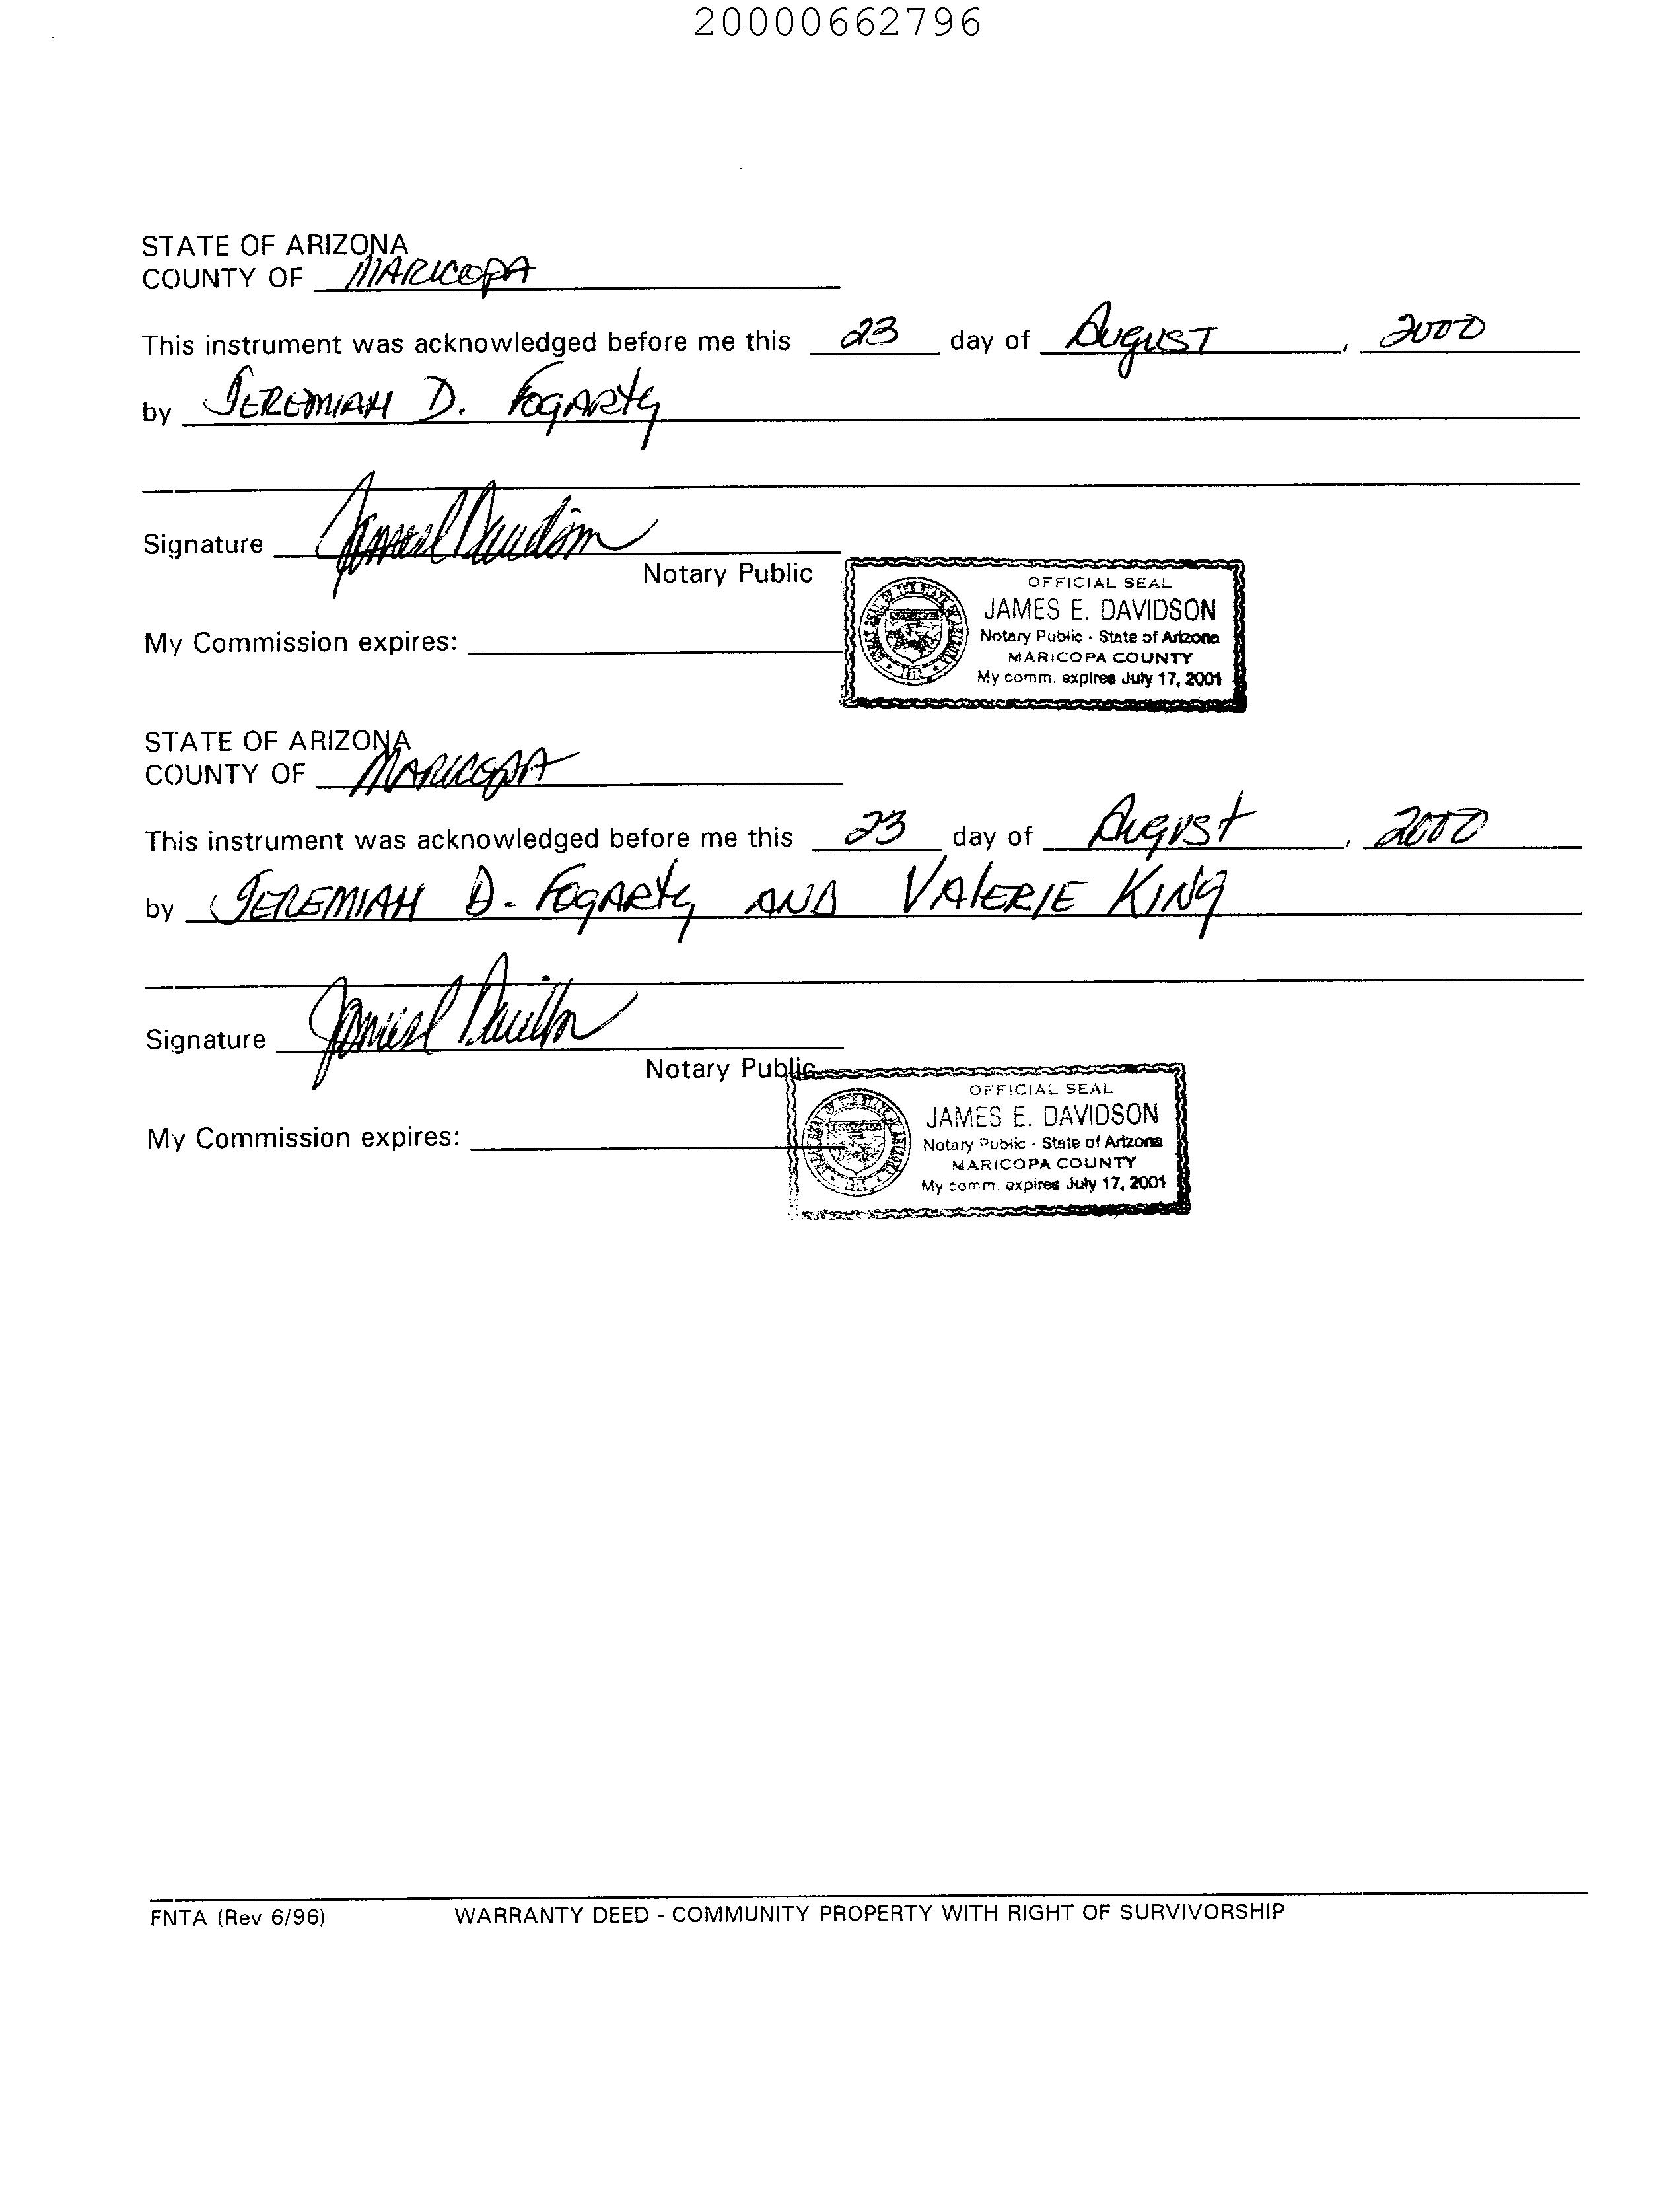 20000662796
STATE OF ARIZONA
COUNTY OF MARICOPA
This instrument was acknowledged before me this 23 day of August, 2000
by JEREMIAH D. FOGARTY
Signature
Notary Public
OFFICIAL SEAL
JAMES E. DAVIDSON
Notary Public - State of Arizona
MARICOPA COUNTY
My comm. expires July 17, 2001
My Commission expires:
STATE OF ARIZONA
COUNTY OF MARICOPA
This instrument was acknowledged before me this 23 day of August, 2000
by JEREMIAH D. FOGARTY AND VALERIE KING
Signature
Notary Public
OFFICIAL SEAL
JAMES E. DAVIDSON
Notary Public - State of Arizona
MARICOPA COUNTY
My comm. expires July 17, 2001
My Commission expires:
FNTA (Rev 6/96) WARRANTY DEED - COMMUNITY PROPERTY WITH RIGHT OF SURVIVORSHIP